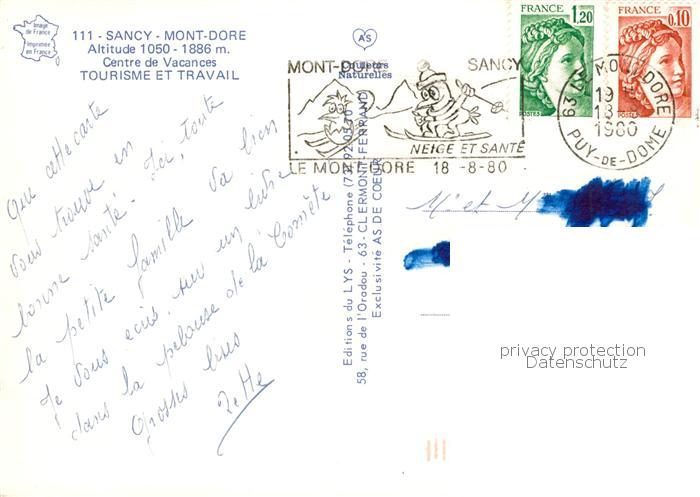 Image
de France
Imprimée
en France
111 - SANCY - MONT-DORE
Altitude 1050 - 1886 m.
Centre de Vacances
TOURISME ET TRAVAIL
AS
Couleurs
Naturelles
MONT-DORE SANCY
NEIGE ET SANTÉ
LE MONT-DORE 18-8-80
FRANCE
1,20
POSTES
FRANCE
0,10
POSTES
63 MONT DORE
19
18
1980
PUY-DE-DOME
Que cette carte
vous trouve en
bonne santé. Ici, toute
la petite famille va bien
Je vous écris, sur un
dans la pelouse de la Comète
Grosses bises
Zette
Editions du LYS - Téléphone (73) 92.05.70
58, rue de l'Oradou - 63-CLERMONT-FERRAND
Exclusivité AS DE COEUR
Mr et M
privacy protection
Datenschutz